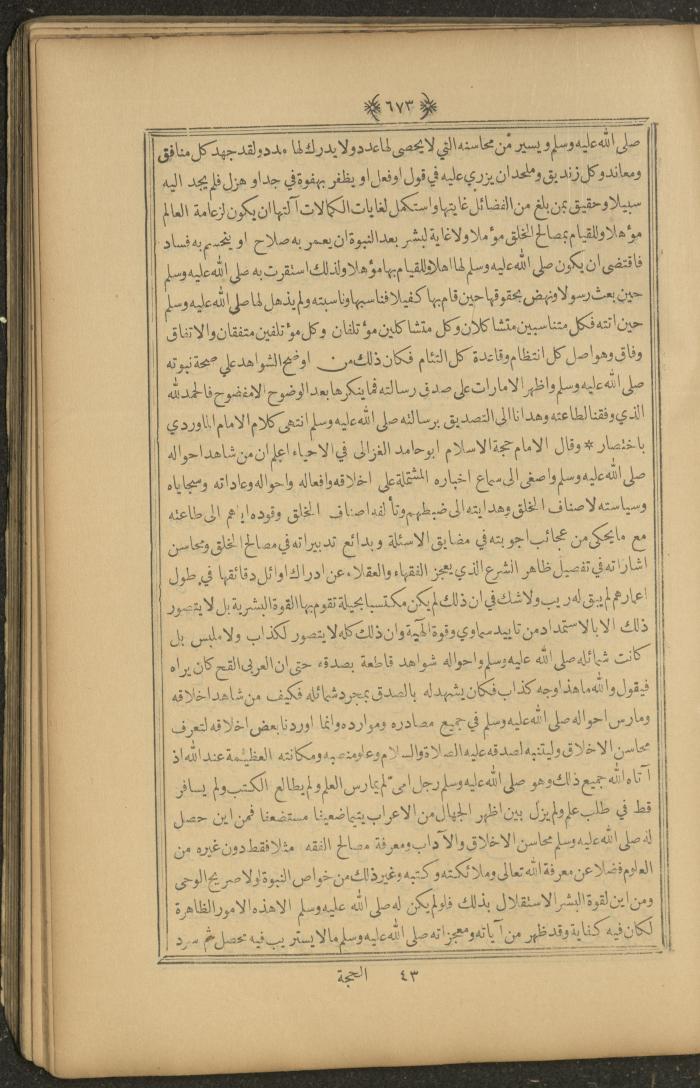 ٦٧٣
صلى الله عليه وسلم ويسير من محاسنه التي لا يحصى لها عدد ولا يدرك لها مدد ولقد جهد كل منافق
ومعاند وكل زنديق وملحد ان يزري عليه في قول او فعل او يظفر بهفوة في جد او هزل فلم يجد اليه
سبيلا وحقيق بمن بلغ من الفضائل غايتها واستكمل لغايات الكمالات آلتها ان يكون لزعامة العالم
مؤهلا وللقيام بمصالح الخلق مؤملا ولا غاية لبشر بعد النبوة ان يعمر به صلاح او ينحسم به فساد
فاقتضى ان يكون صلى الله عليه وسلم لها اهلا وللقيام بها مؤهلا ولذلك استقرت به صلى الله عليه وسلم
حين بعث رسولا ونهض بحقوقها حين قام بها كفيلا فناسبها وناسبته ولم يذهل لها صلى الله عليه وسلم
حين اتته فكل متناسبين متشاكلان وكل متشاكلين مؤتلفان وكل مؤتلفين متفقان والاتفاق
وفاق وهو اصل كل انتظام وقاعدة كل التئام فكان ذلك من اوضح الشواهد علي صحة نبوته
صلى الله عليه وسلم واظهر الامارات على صدق رسالته فما ينكرها بعد الوضوح الا مفضوح فالحمد لله
الذي وفقنا لطاعته وهدانا الى التصديق برسالته صلى الله عليه وسلم انتهى كلام الامام الماوردي
باختصار * وقال الامام حجة الاسلام ابو حامد الغزالى في الاحياء اعلم ان من شاهد احواله
صلى الله عليه وسلم واصغى الى سماع اخباره المشتملة على اخلاقه وافعاله واحواله وعاداته وسجاياه
وسياسته لاصناف الخلق وهدايته الى ضبطهم وتألفه اصناف الخلق وقوده اياهم الى طاعته
مع ما يحكى من عجائب اجوبته في مضايق الاسئلة وبدائع تدبيراته في مصالح الخلق ومحاسن
اشاراته في تفصيل ظاهر الشرع الذي يعجز الفقهاء والعقلاء عن ادراك اوائل دقائقها في طول
اعمارهم لم يبق له ريب ولا شك في ان ذلك لم يكن مكتسبا بحيلة تقوم بها القوة البشرية بل لا يتصور
ذلك الا بالاستمداد من تاييد سماوي وقوة الهية وان ذلك كله لا يتصور لكذاب ولا ملبس بل
كانت شمائله صلى الله عليه وسلم واحواله شواهد قاطعة بصدقه حتى ان العربي القح كان يراه
فيقول والله ما هذا وجه كذاب فكان يشهد له بالصدق بمجرد شمائله فكيف من شاهد اخلاقه
ومارس احواله صلى الله عليه وسلم في جميع مصادره وموارده وانما اوردنا بعض اخلاقه لتعرف
محاسن الاخلاق وليتنبه لصدقه عليه الصلاة والسلام وعلو منصبه ومكانته العظيمة عند الله اذ
آتاه الله جميع ذلك وهو صلى الله عليه وسلم رجل امى لم يمارس العلم ولم يطالع الكتب ولم يسافر
قط في طلب علم ولم يزل بين اظهر الجهال من الاعراب يتيما ضعيفا مستضعفا فمن اين حصل
له صلى الله عليه وسلم محاسن الاخلاق والآداب ومعرفة مصالح الفقه مثلا فقط دون غيره من
العلوم فضلا عن معرفة الله تعالى وملائكته وكتبه وغير ذلك من خواص النبوة لولا صريح الوحى
ومن اين لقوة البشر الاستقلال بذلك فلو لم يكن له صلى الله عليه وسلم الا هذه الامور الظاهرة
لكان فيه كفاية وقد ظهر من آياته ومعجزاته صلى الله عليه وسلم ما لا يستريب فيه محصل ثم سرد
٤٣ الحجة